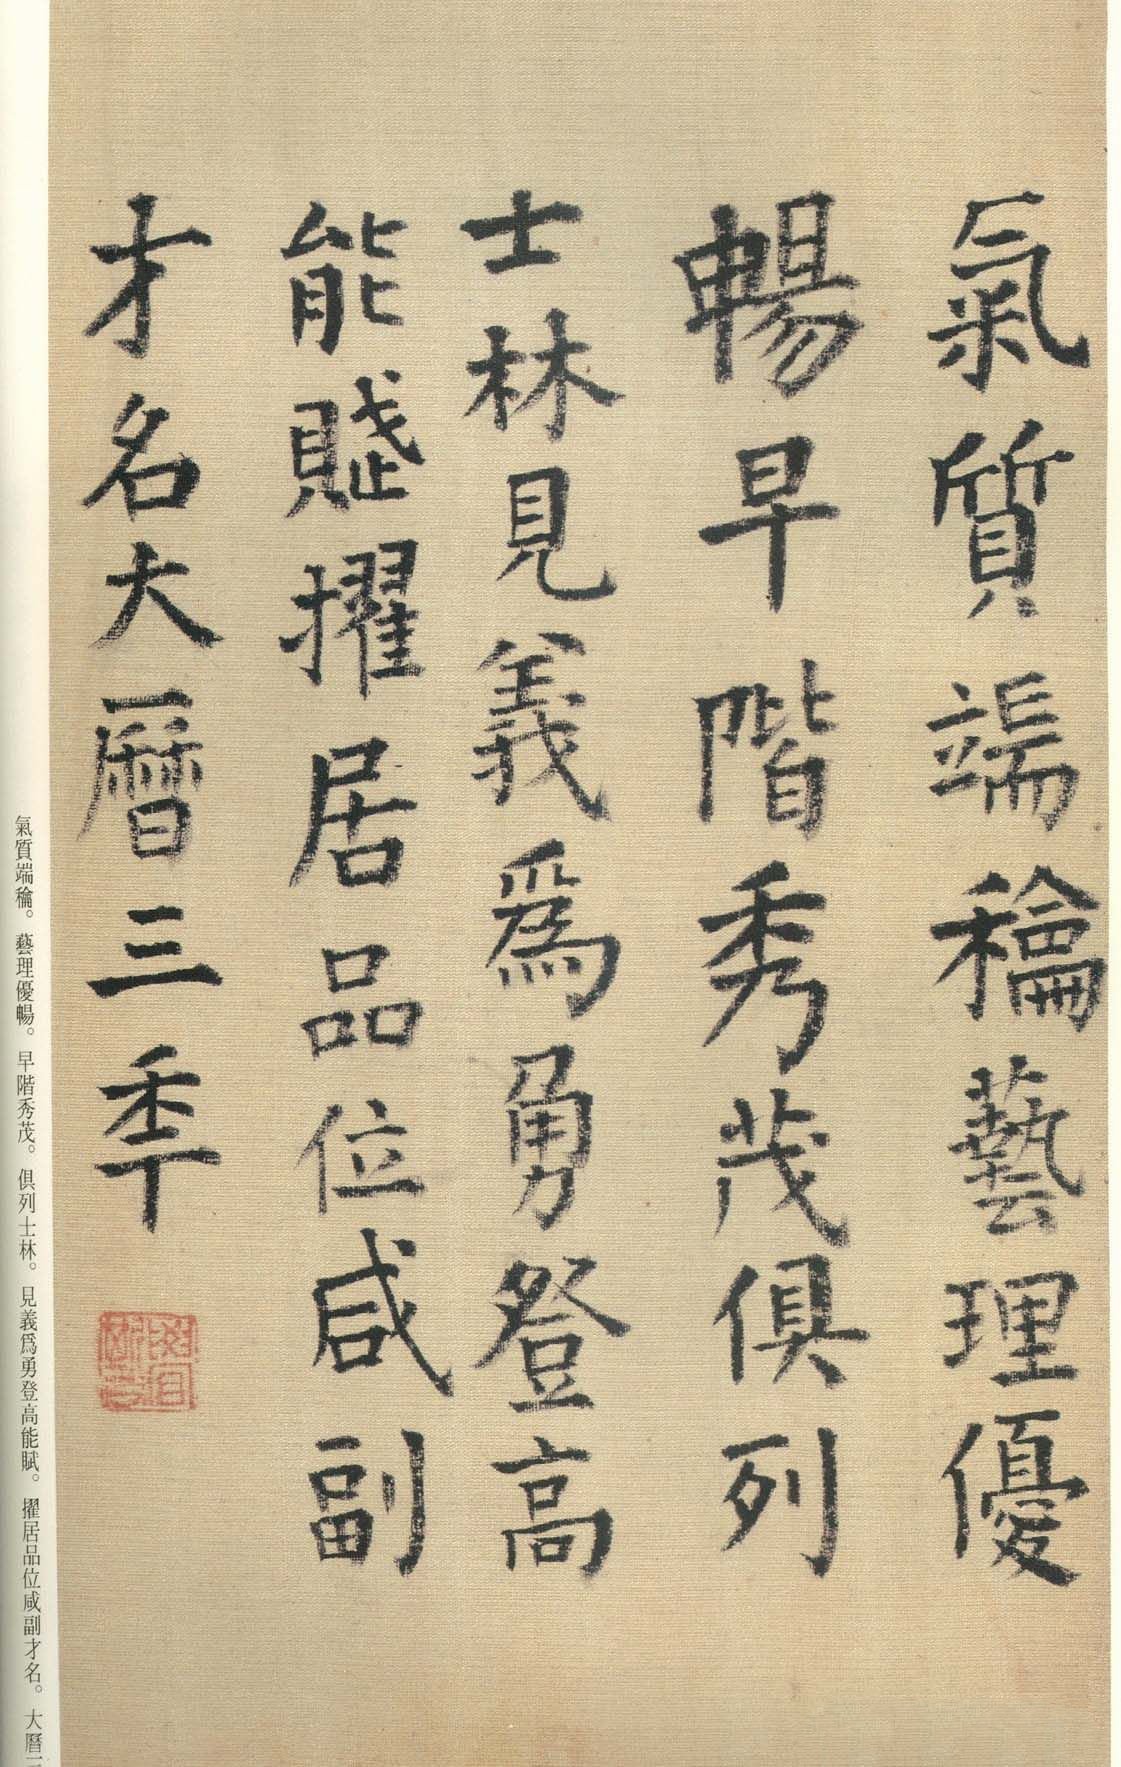 氣質端䆃藝理優
暢早階秀茂俱列
士林見義爲勇登高
能賦擢居品位咸副
才名大曆三秊
氣質端。藝理優暢。早階秀茂。俱列士林。見義爲勇登高能賦。擢居品位咸副才名。大曆三